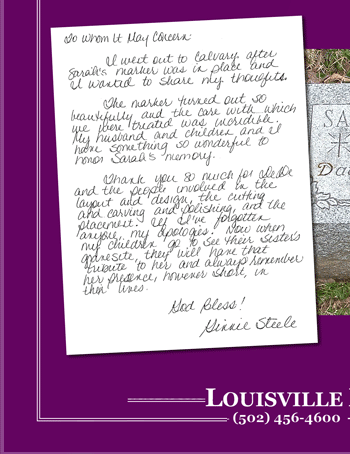 To Whom It May Concern:
I went out to Calvary after
Sarah's marker was in place and
I wanted to share my thoughts.
The marker turned out so
beautifully and the care with which
we were treated was incredible.
My husband and children and I
have something so wonderful to
honor Sarah's memory.
Thank you so much for
and the people involved in the
layout and design, the cutting
and carving and polishing, and the
placement. If I've forgotten
anyone, my apologies. Now when
my children go to see their sister's
gravesite, they will have that
tribute to her and always remember
her presence, however short, in
their lives.
God Bless!
Ginnie Steele
SA
Da
LOUISVILLE
(502) 456-4600